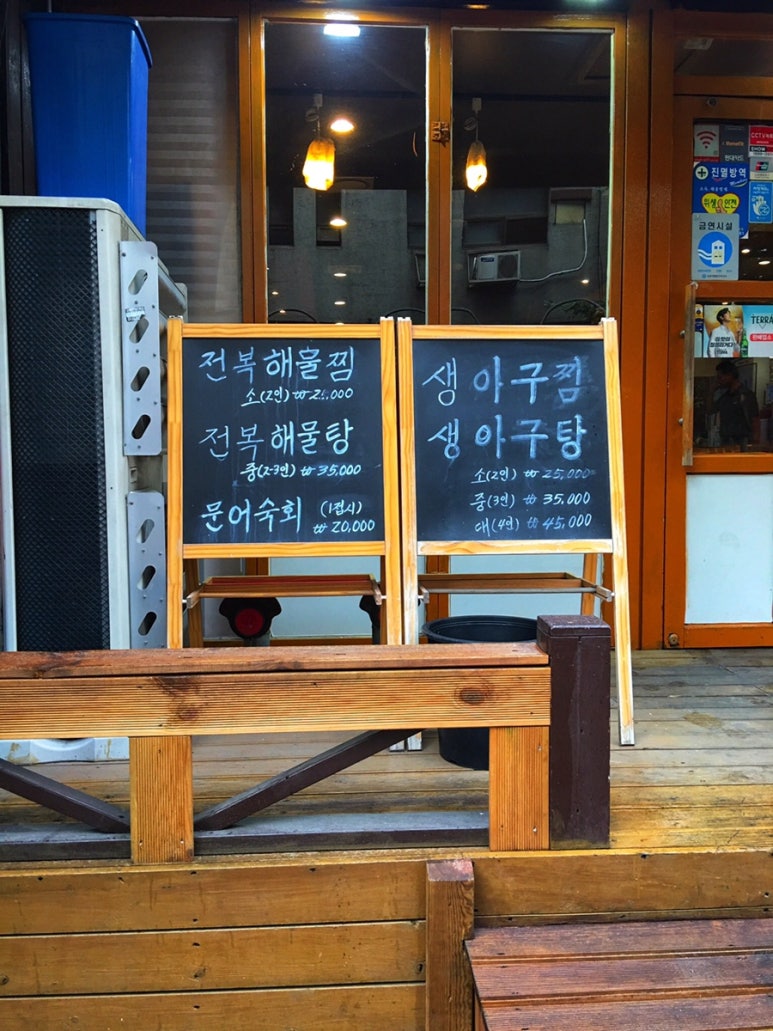 전복해물찜
소(2인) ₩25,000
전복해물탕
중(2-3인) ₩35,000
문어숙회 (1접시)
₩20,000
생 아구찜
생 아구탕
소(2인) ₩25,000
중(3인) ₩35,000
대(4인) ₩45,000
진멸방역
위생안전
금연시설
TERRA